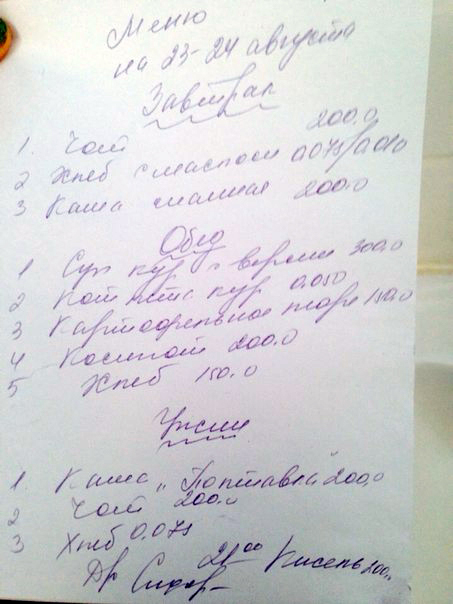 Меню
на 23-24 августа
Завтрак
1. Чай 200.0
2 Хлеб с маслом 0.075/0.010
3 Каша манная 200.0
Обед
1 Суп кур с верми 300.0
2 Котлета кур 0.050
3 Картофельное пюре 150.0
4 Компот 200.0
5 Хлеб 150.0
Ужин
1. Каша "Полтавка" 200.0
2 Чай 200.0
3 Хлеб 0.075
21 00 Кисель 200.